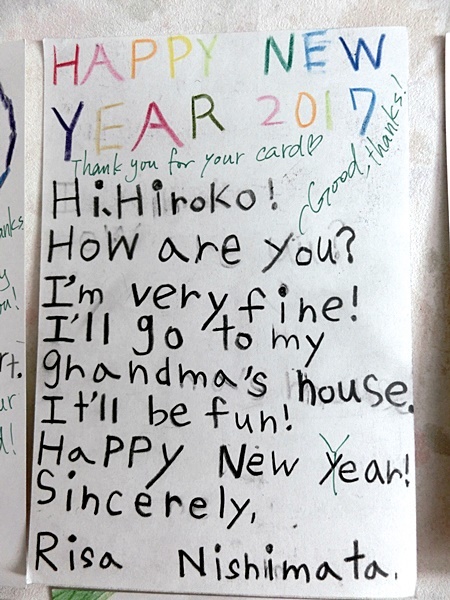 HAPPY NEW
YEAR 2017
Thank you for your card♡
Good, thanks!
Hi.Hiroko!
How are you?
I'm very fine!
I'll go to my
grandma's house.
It'll be fun!
HaPPy New Year!
Sincerely,
Risa Nishimata.
anks
y
u!
rt.
ur
d!